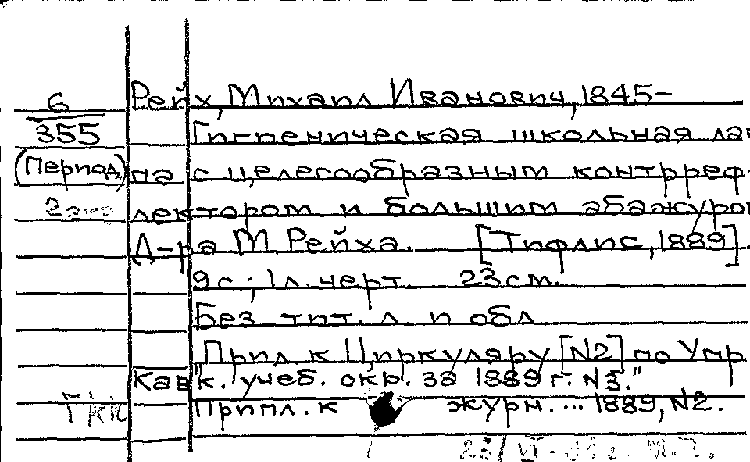 6 Рейх, Михаил Иванович, 1845-
355 Гигиеническая школьная лам
(Период) па с целесообразным контрреф-
лектором и большим абажуром
Д-ра М Рейха. [Тифлис, 1889]
9 с.; 1 л. черт. 23 см.
Без тит. л. и обл
Прил. к Циркуляру [N2] по Упр
Кавк. учеб. окр. за 1889 г. N3."
Припл. к журн. ... 1889, N2.